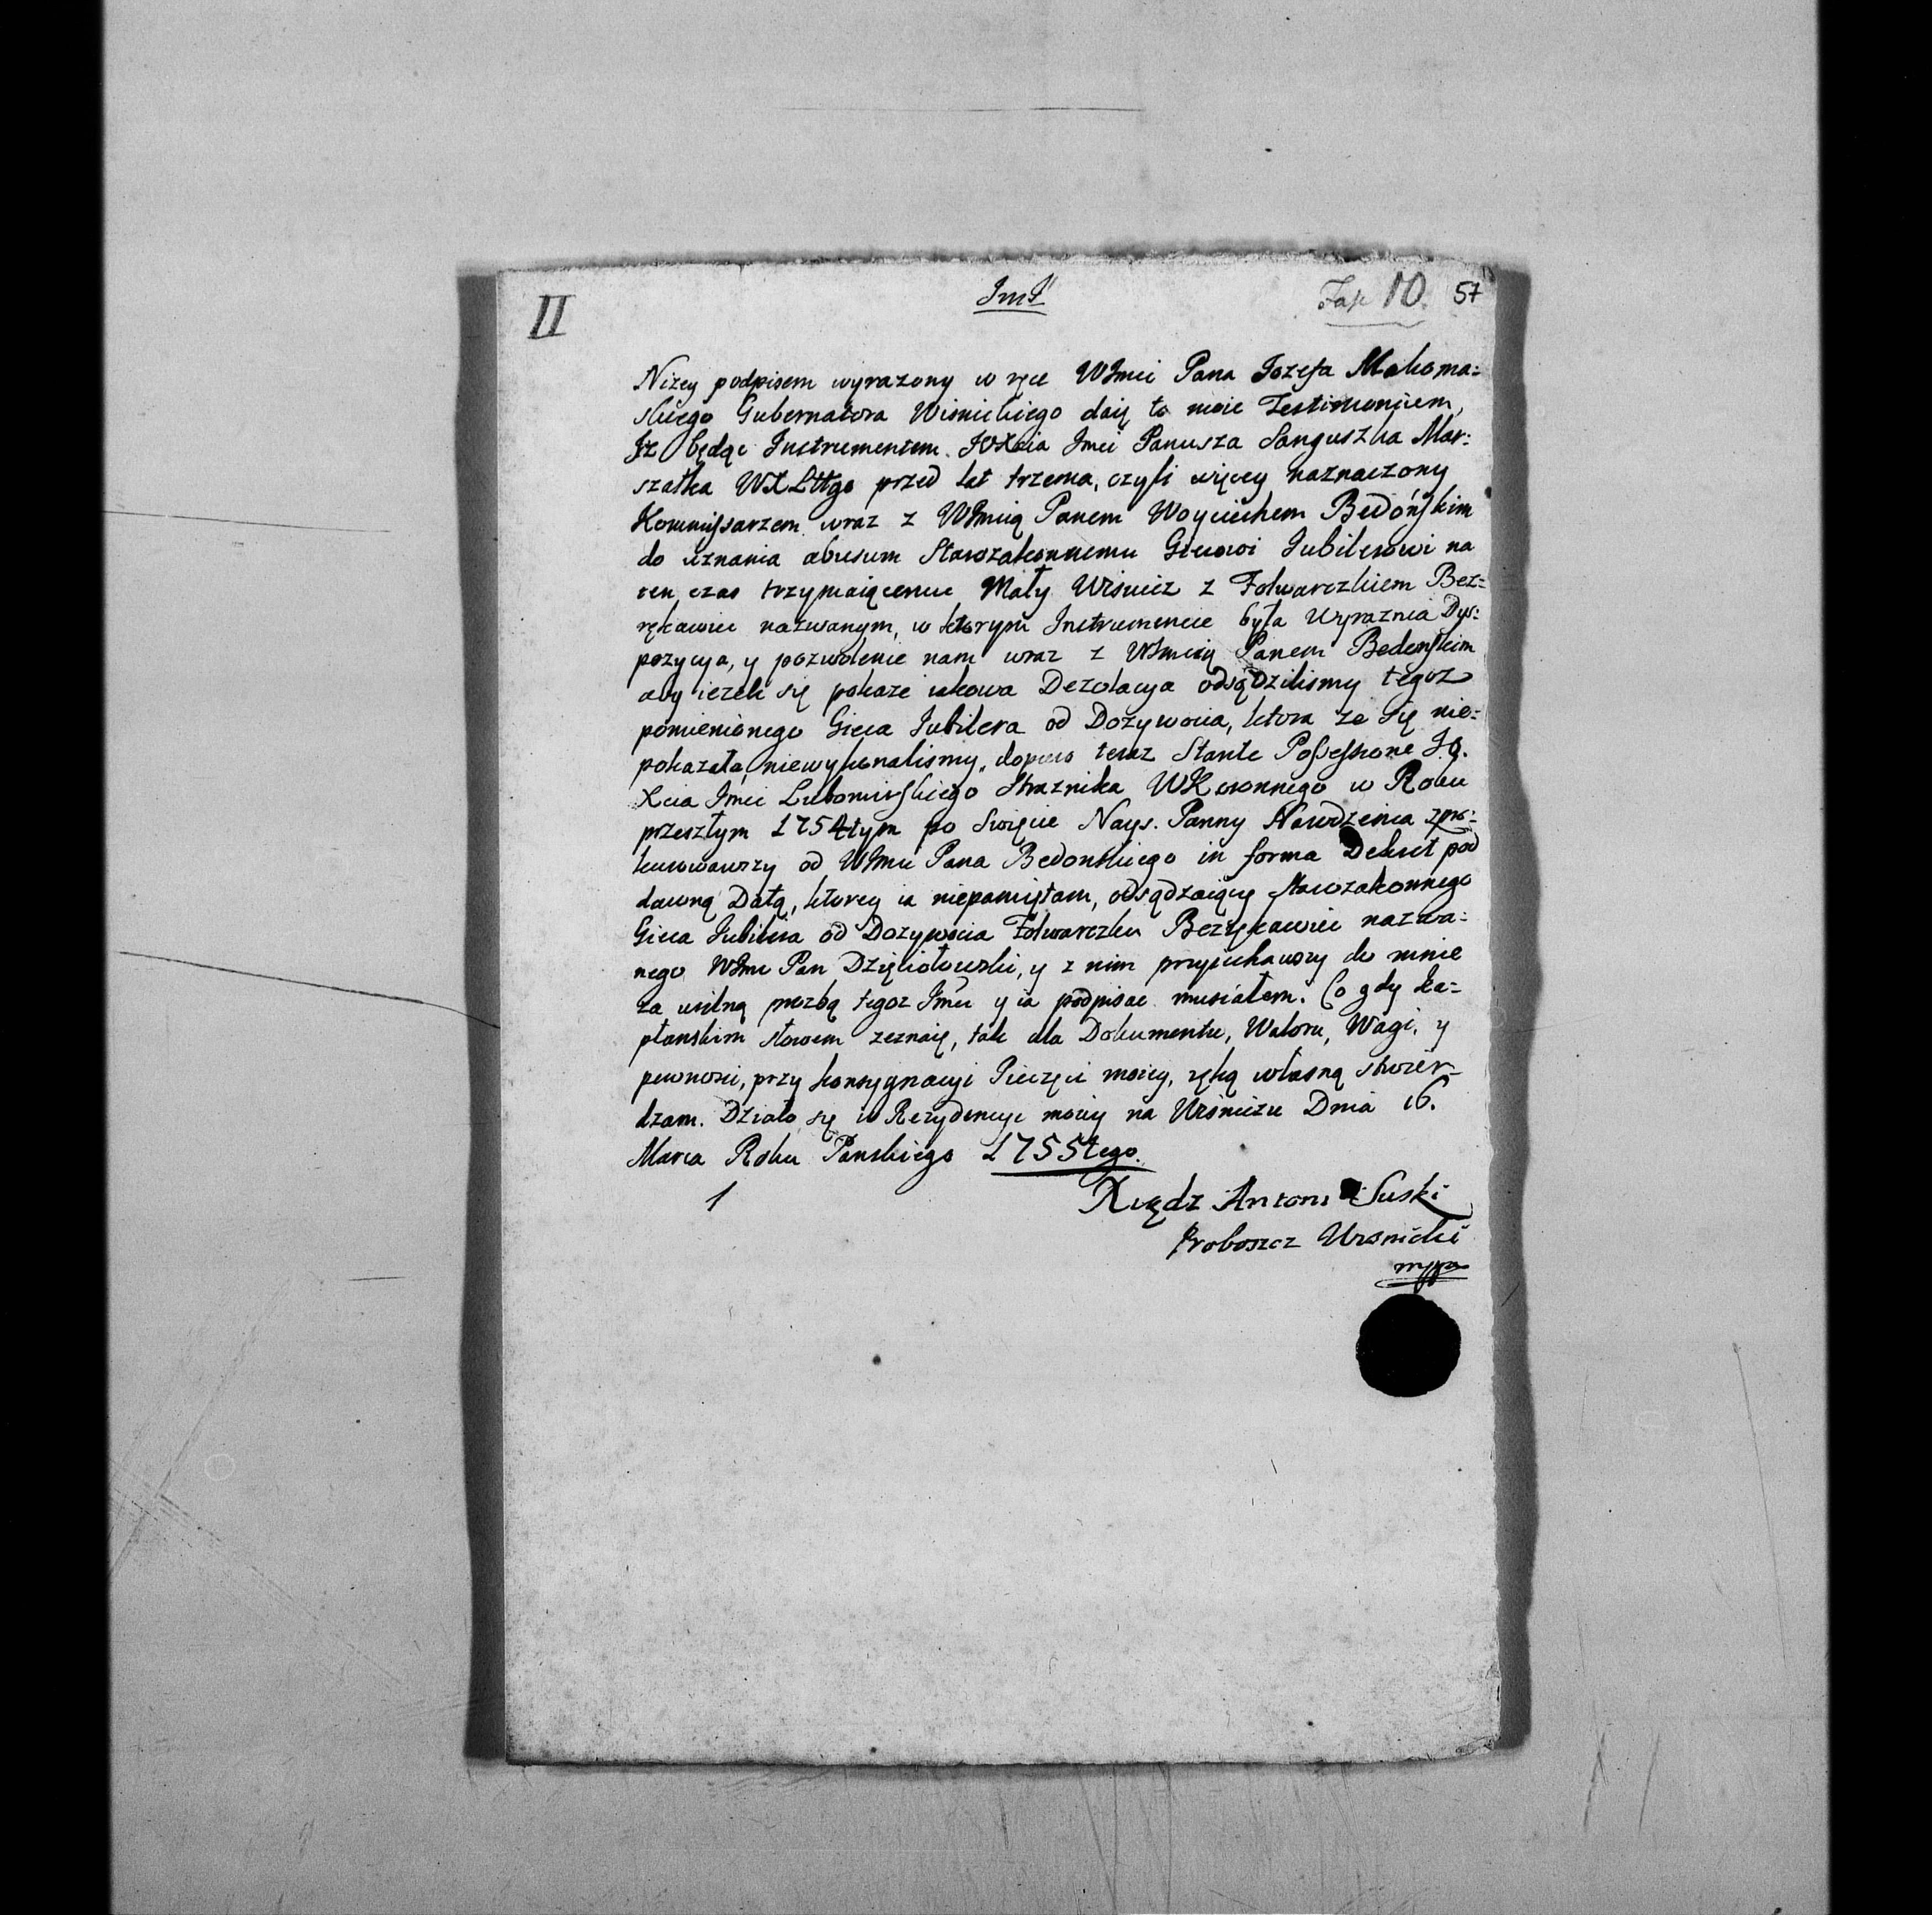 II
ImJ
Fasc 10. 57
Nizey podpisem wyrazony w ręce WJmci Pana Jozefa Makoma=
skiego Gubernatora Wisnickiego daię to moie Testimonium,
Iż będąc Instrumentem JOXcia Jmci Panusza Sanguszka Mar:
szałka WXLttgo przed lat trzema, czyli więcey naznaczony
Kommissarzem wraz z WJmcią Panem Woyciechem Bedóńskim
do uznania abusum Starozakonnemu Giecowi Jubilerowi na
ten czas trzymaiącemu Mały Wiśnicz z Folwarczkiem Bez=
rękawiec nazwanym, w ktorym Instrumencie była Wyraznia Dys:
pozycya, y pozwolenie nam wraz z WJmcią Panem Bedonskim
aby ieżeli się pokaże iakowa Dezolacya odsądzilismy tegoz
pomienionego Gieca Jubilera od Dozywocia, ktora ze się nie=
pokazała, niewykonalismy, dopiero teraz Stante Possessione J.O.
Xcia Jmci Lubomirskiego Straznika WKoronnego w Roku
przeszłym 1754tym po Swięcie Nays. Panny Narodzenia zpro=
kurowawszy od WJmci Pana Bedonskiego in forma Dekret pod
dawną Datą, ktorey ia niepamiętam, odsądzaiący Starozakonnego
Gieca Jubilera od Dozywocia Folwarczku Bezrękawiec nazwa=
nego WJmc Pan Dzięciołowski, y z nim przyiechawszy do mnie
za usilną prozbą tegoz Jmci y ia podpisac musiałem. Co gdy Ka=
płanskim słowem zeznaię, tak dla Dokumentu, Waloru, Wagi, y
pewnosci, przy konsygnacyi Pieczęci moiey, ręką własną stwier=
dzam. Działo się w Rezydencyi moiey na Wiśniczu Dnia 16.
Marca Roku Panskiego 1755tego.
1
Xiędz Antoni Suski
Proboszcz Wisnicki
mppa